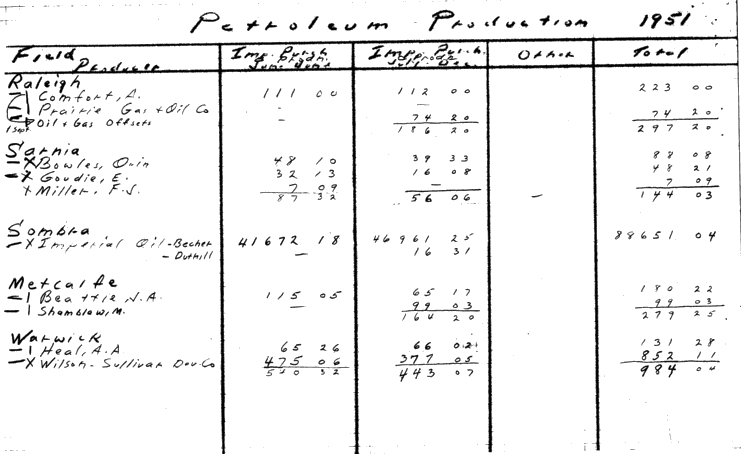 Petroleum Production 1951
Field Products Imp. Purch. Prodn. Jan. June Imp. Purch. Prodn. July Dec. Other Total
Raleigh
1 Comfort, A. 111 00 112 00 223 00
Prairie Gas + Oil Co – –
Oil + Gas Offsets – 74 20 74 20
1 Sept. 186 20 297 20
Sarnia
– X Bowles, Orin 48 10 39 33 88 08
– X Goudie, E. 32 13 16 08 48 21
X Miller, F.S. 7 09 – 7 09
87 32 56 06 – 144 03
Sombra
– X Imperial Oil - Becher 41672 18 46961 25 88651 04
– Duthill – 16 31
Metcalfe
– 1 Beattie, N.A. 115 05 65 17 180 22
– 1 Shamblow, M. – 99 03 99 03
164 20 279 25
Warwick
– 1 Heal, A.A 65 26 66 02 131 28
– X Wilson - Sullivan Dev. Co 475 06 377 05 852 11
540 32 443 07 984 04